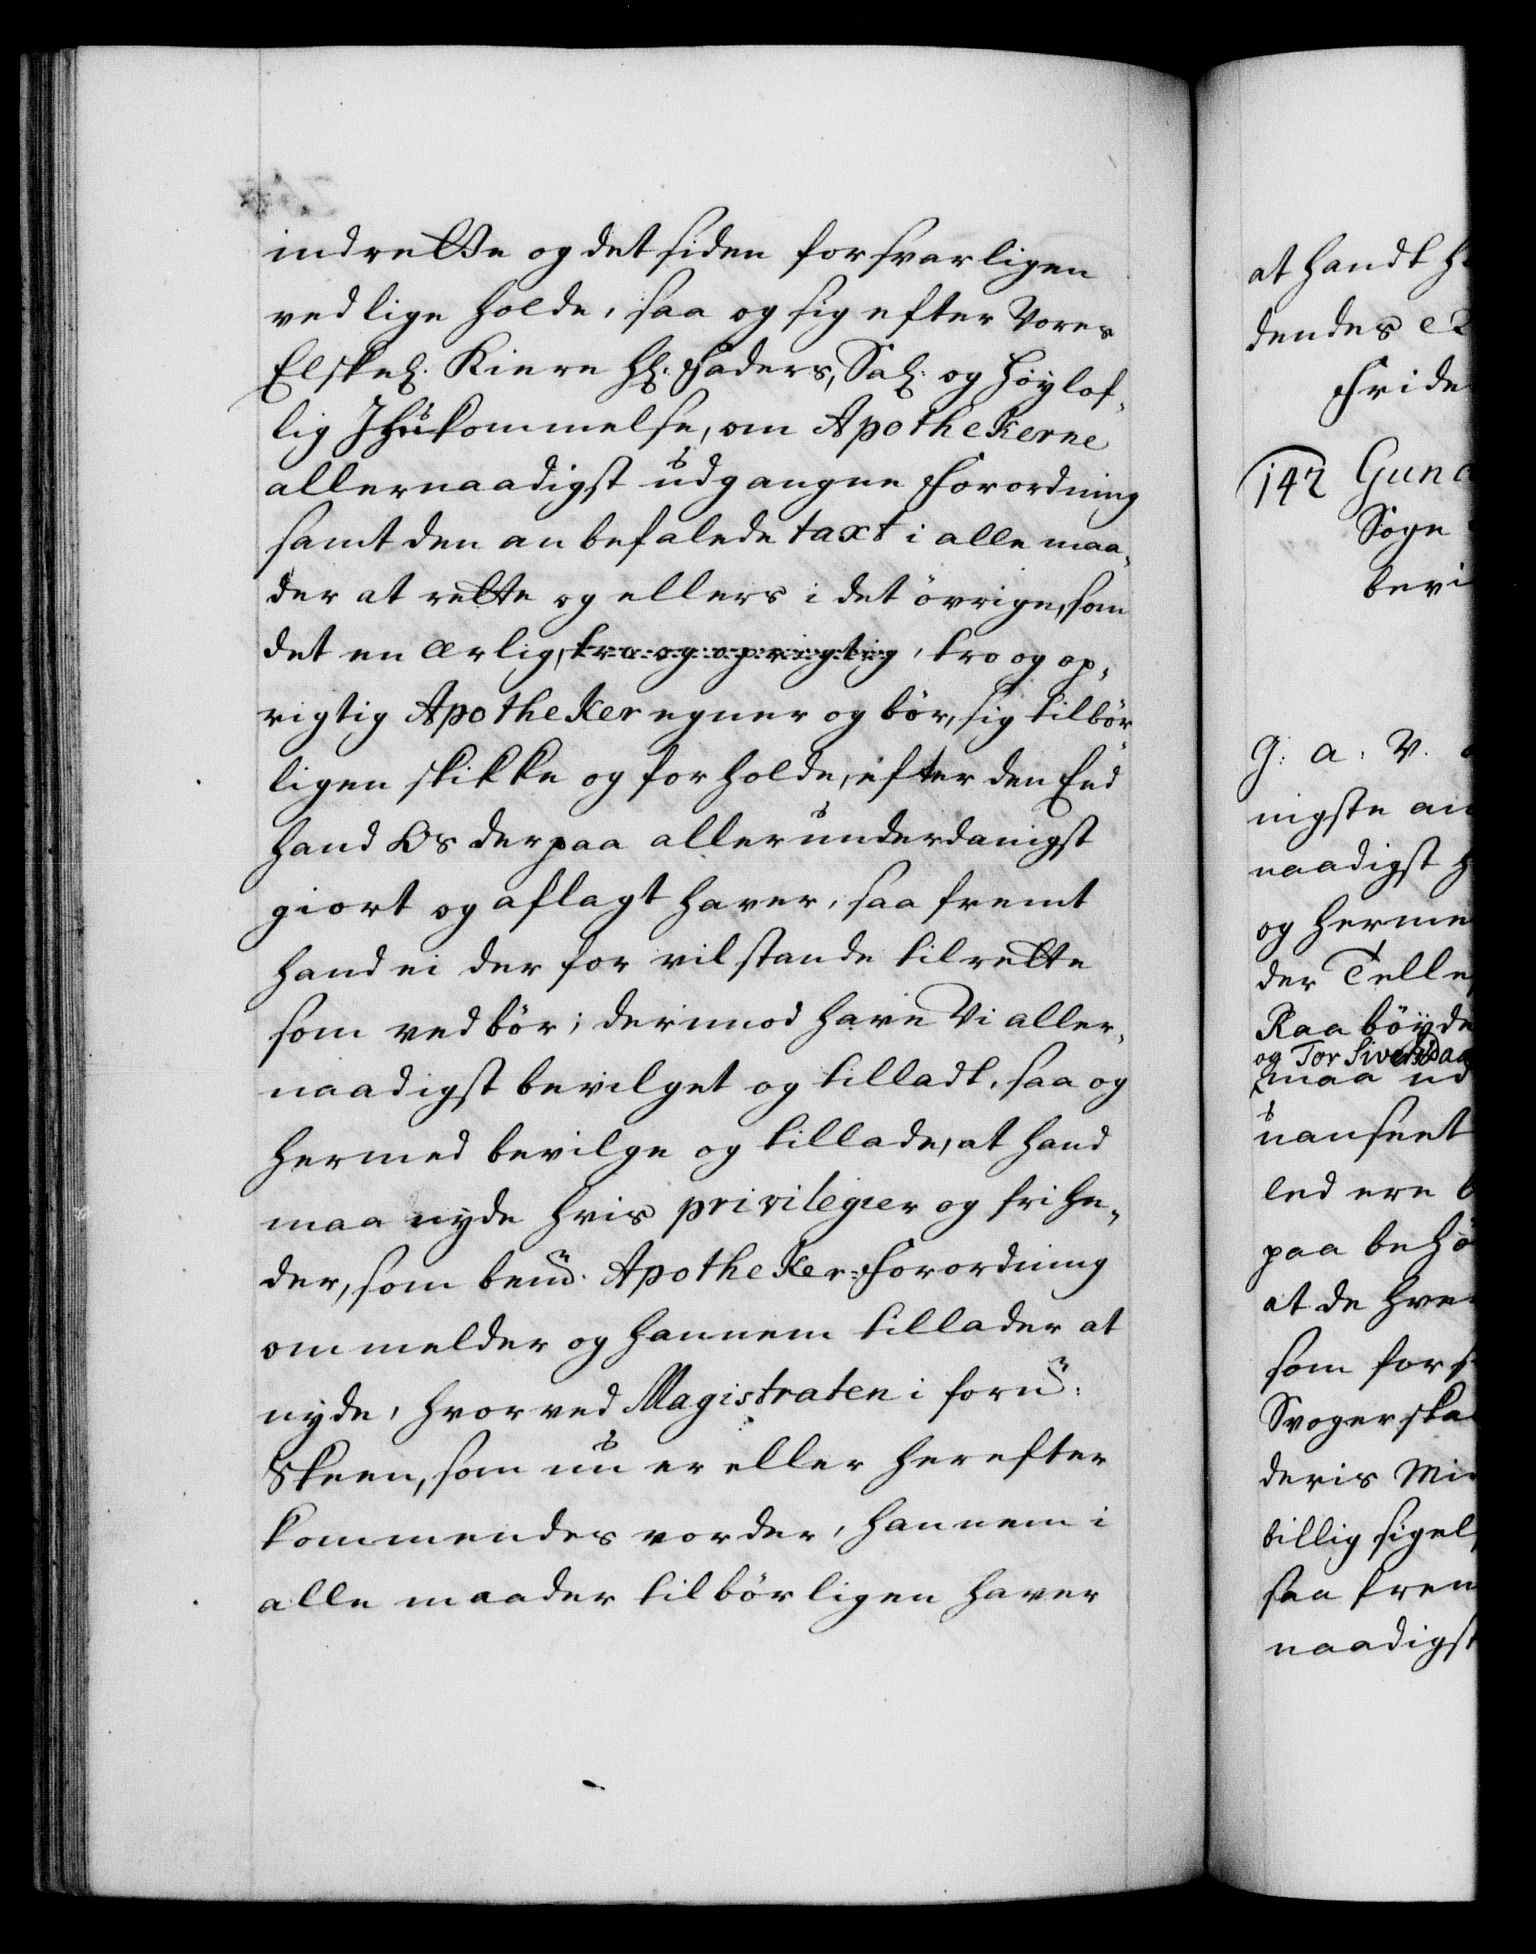 indrette og det siden forsvarligen
ved lige holde, saa og sig efter Vores
Elskel. Kiere Hl. Faders, Sal. og Høylof-
lig Jhukommelse, om Apothekerne
allernaadigst udgangne Forordning
samt den anbefalede taxt i alle maa-
der at rette og ellers i det övrige, som
det en ærlig, tro og oprigtig, tro og op-
rigtig Apotheker egner og bör, sig tilbör-
ligen skikke og forholde, efter den Eed
hand Os derpaa allerunderdanigst
giort og aflagt haver, saa fremt
hand ei der for vil stande til rette
som ved bör; derimod have Vi aller-
naadigst bevilget og tilladt, saa og
hermed bevilge og tillade, at hand
maa nyde hvis privilegier og frihe-
der, som bemd. Apotheker-Forordning
ommelder og hannem tillader at
nyde, hvorved Magistraten i fornd:
Skeen, som nu er eller herefter
kommendes vorder, hannem i
alle maader tilbörligen haver
at handt
dendes
Fride
142
Sogn
bevi
G: A: V.
nigste an
naadigst
og herme
der Telle
Raabøyde
og Tor Sivers
maa ud
uanseet
led ere
paa behö
at de hver
som for
Svogerska
deris Mi
billig sigel
saa frem
naadigst